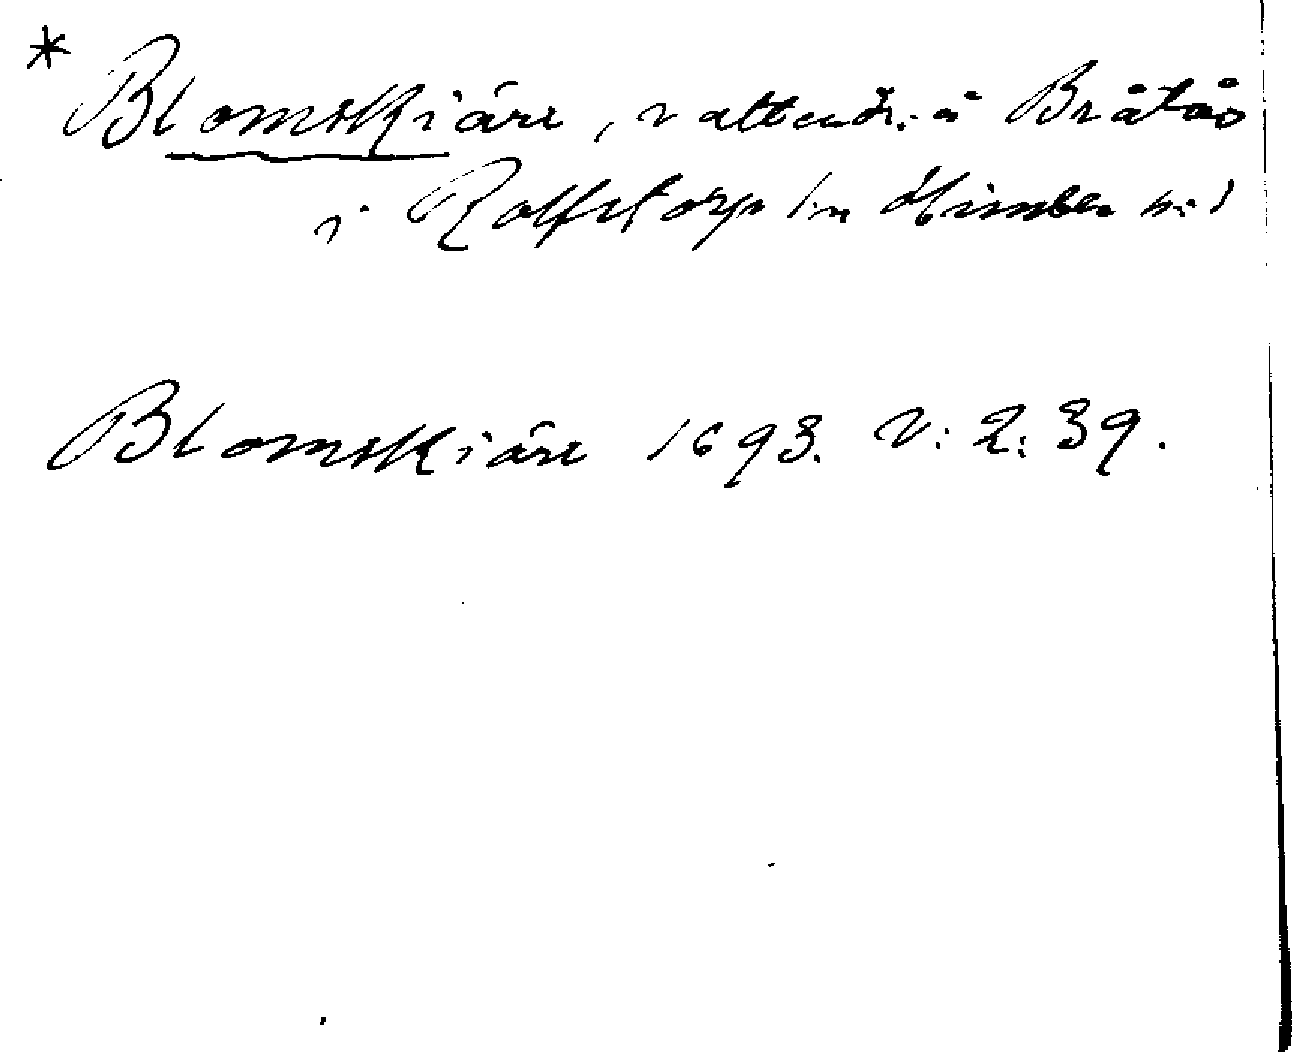 * Blomskiäre, vattendr. å Bråtås
i Rolfstorp sn Himble hd
Blomskiäre 1693. V: 2: 39.